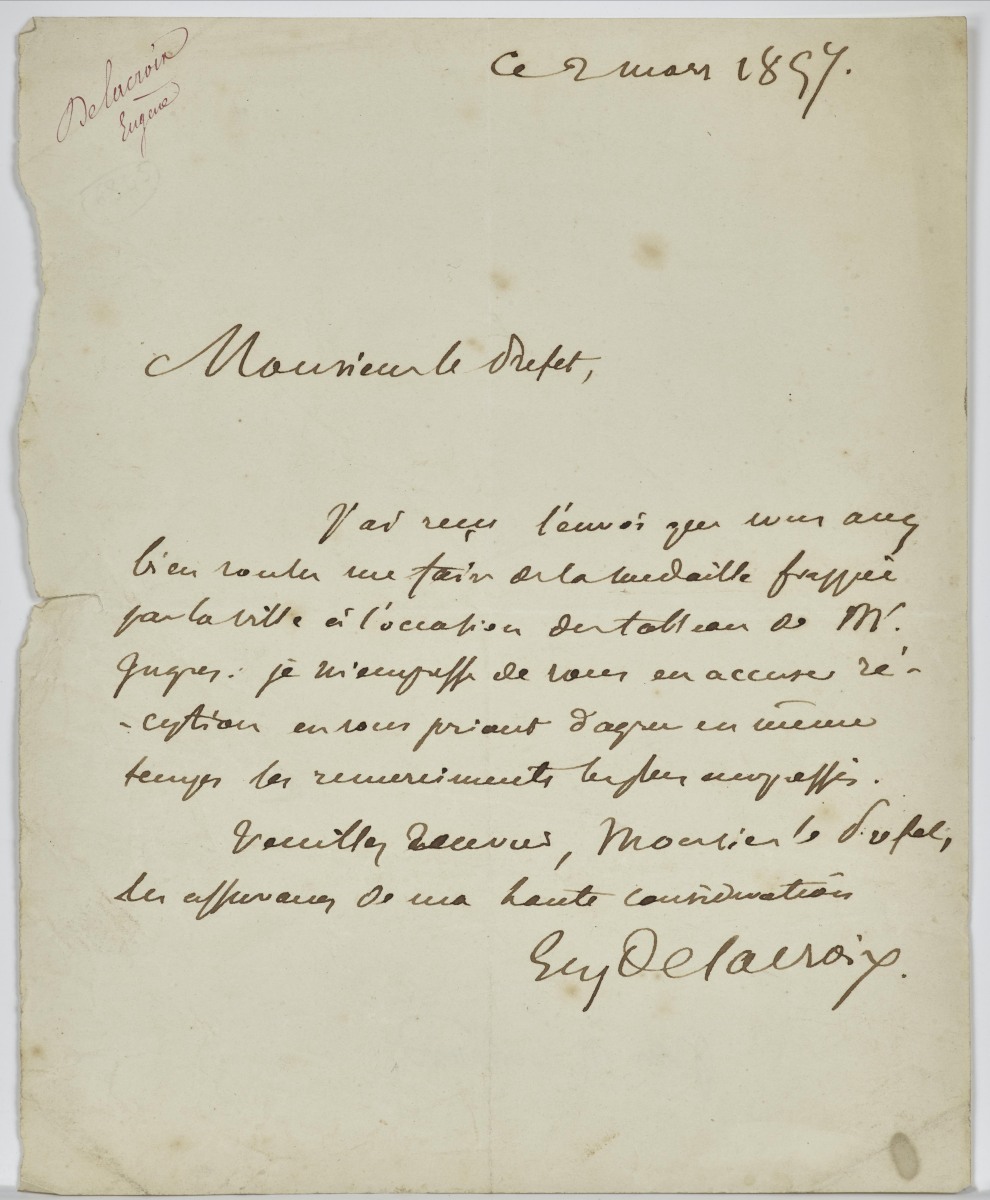 Delacroix
Eugène
Ce 2 mars 1857.
Monsieur le Préfet,
J'ai reçu l'envoi que vous avez
bien voulu me faire de la médaille frappée
par la ville à l'occasion des tableau de Mr.
Ingres: je m'empresse de vous en accuser ré-
-ception en vous priant d'agréer en même
temps les remerciments les plus empressés.
Veuillez recevoir, Monsieur le Préfet,
les assurances de ma haute considération
Eug Delacroix.